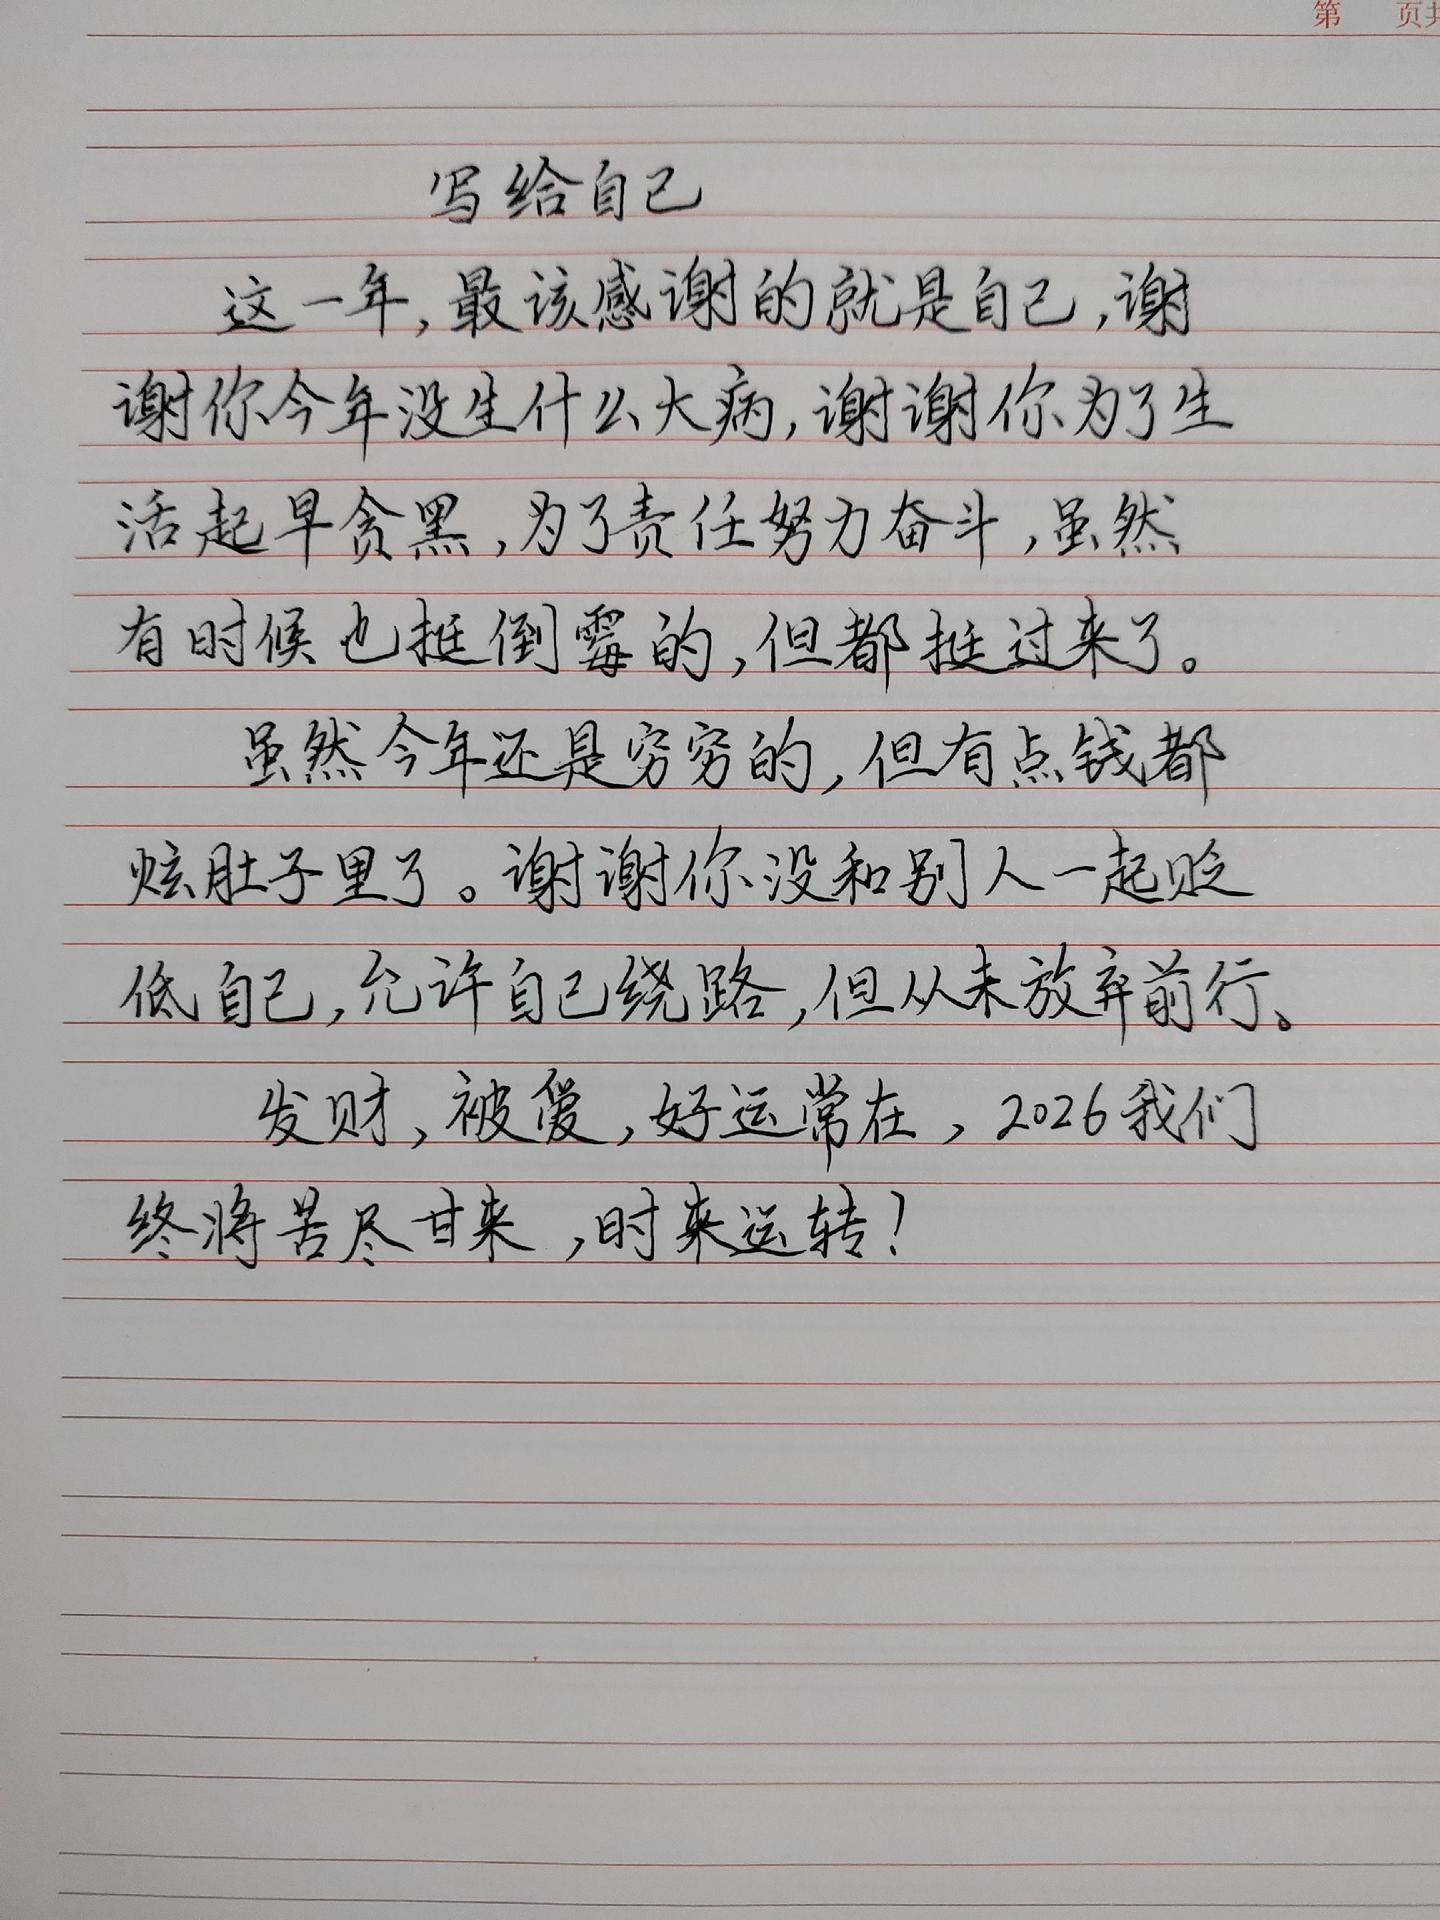 第 页共
写给自己
这一年,最该感谢的就是自己,谢
谢你今年没生什么大病,谢谢你为了生
活起早贪黑,为了责任努力奋斗,虽然
有时候也挺倒霉的,但都挺过来了。
虽然今年还是穷穷的,但有点钱都
炫肚子里了。谢谢你没和别人一起贬
低自己,允许自己绕路,但从未放弃前行。
发财,被爱,好运常在,2026我们
终将苦尽甘来,时来运转!